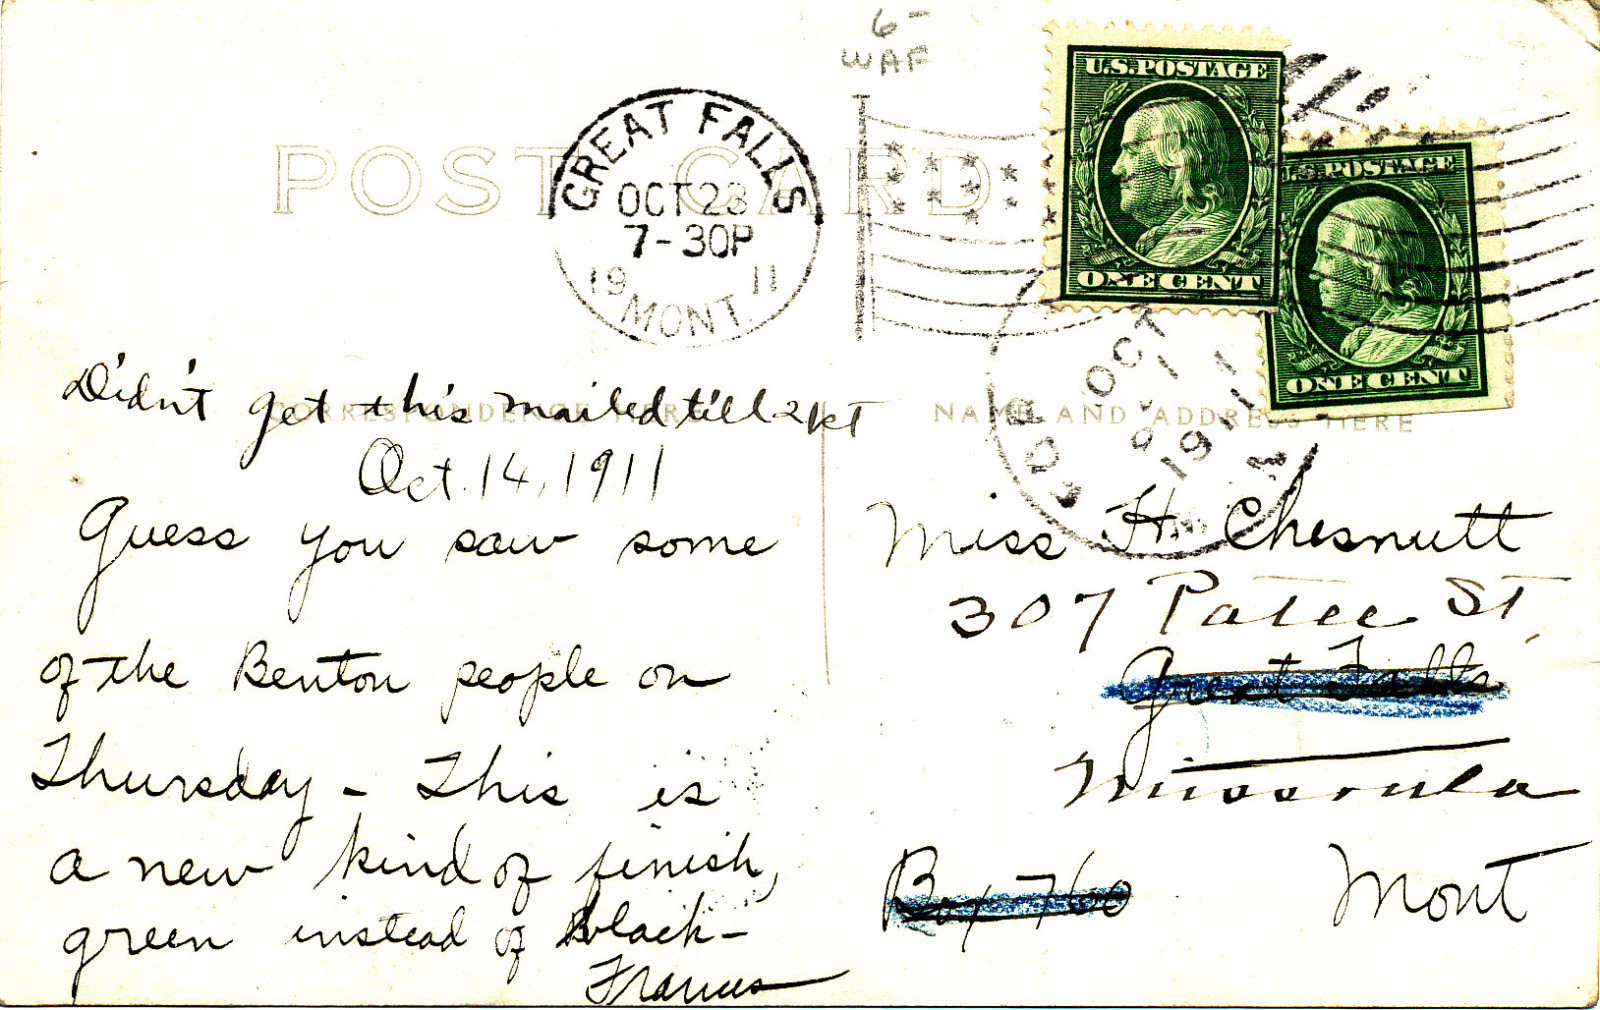 6-
WAF
U.S. POSTAGE
ONE CENT
U.S. POSTAGE
ONE CENT
GREAT FALLS
OCT 23
7-30P
19 11
MONT.
POST CARD
OCT
1911
CORRESPONDENCE HERE
NAME AND ADDRESS HERE
Didn't get this mailed till
Oct. 14, 1911
Guess you saw some
of the Benton people on
Thursday - This is
a new kind of finish,
green instead of black -
Frances
Miss H. Chesnutt
307 Patee St,
Great Falls
Missoula
Box 760
Mont